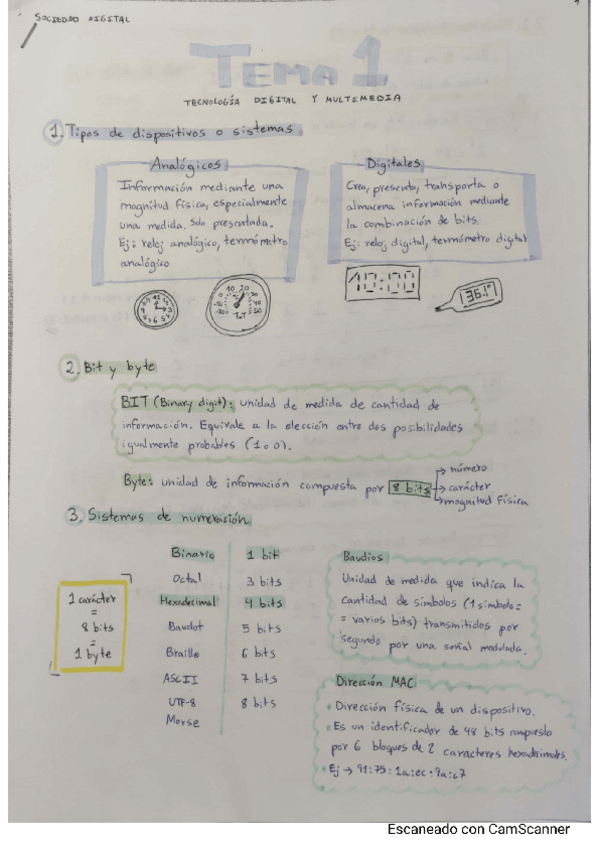 SOCIEDAD DIGITAL
TEMA 1
TECNOLOGÍA DIGITAL Y MULTIMEDIA
1. Tipos de dispositivos o sistemas
Analógicos
Información mediante una
magnitud física, especialmente
una medida. Solo presentada.
Ej: reloj analógico, termómetro
analógico
Digitales
Crea, presenta, transporta o
almacena información mediante
la combinación de bits
Ej: reloj digital, termómetro digital
10:00
36.17
2. Bit y byte
BIT (Binary digit): unidad de medida de cantidad de
información. Equivale a la elección entre dos posibilidades
igualmente probables (1 o 0).
Byte: unidad de información compuesta por 8 bits
→ número
→ carácter
→ magnitud física
3. Sistemas de numeración
1 carácter
=
8 bits
=
1 byte
Binario 1 bit
Octal 3 bits
Hexadecimal 4 bits
Baudot 5 bits
Braille 6 bits
ASCII 7 bits
UTF-8 8 bits
Morse
Baudios
Unidad de medida que indica la
cantidad de símbolos (1 símbolo =
= varios bits) transmitidos por
segundo por una señal modulada.
Dirección MAC
• Dirección física de un dispositivo.
• Es un identificador de 48 bits compuesto
por 6 bloques de 2 caracteres hexadecimales.
• Ej → 91:75:1a:ec:9a:c7
Escaneado con CamScanner